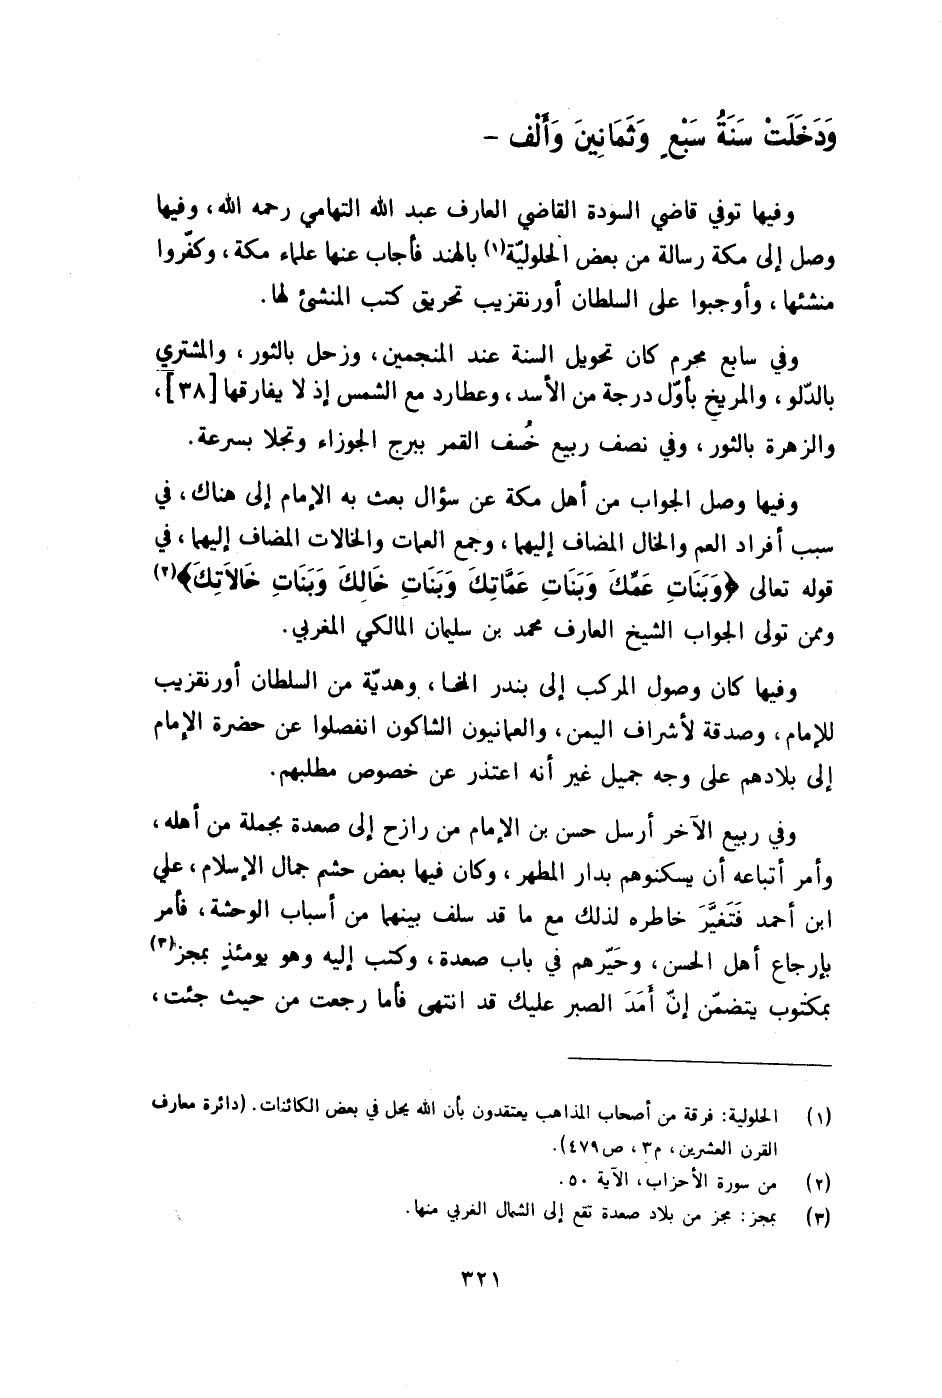 وَدَخَلَتْ سَنَةُ سَبْعٍ وَثَمَانِينَ وَأَلْف –
وفيها توفي قاضي السودة القاضي العارف عبد الله التهامي رحمه الله، وفيها
وصل إلى مكة رسالة من بعض الحلوليّة(١) بالهند فأجاب عنها علماء مكة، وكفّروا
منشئها، وأوجبوا على السلطان أورنقزيب تحريق كتب المنشئ لها.
وفي سابع محرم كان تحويل السنة عند المنجمين، وزحل بالثور، والمشتري
بالدّلو، والمريخ بأوّل درجة من الأسد، وعطارد مع الشمس إذ لا يفارقها [٣٨]،
والزهرة بالثور، وفي نصف ربيع خُسف القمر ببرج الجوزاء وتجلا بسرعة.
وفيها وصل الجواب من أهل مكة عن سؤال بعث به الإمام إلى هناك، في
سبب أفراد العم والخال المضاف إليهما، وجمع العمات والخالات المضاف إليهما، في
قوله تعالى ﴿وَبَنَاتِ عَمِّكَ وَبَنَاتِ عَمَّاتِكَ وَبَنَاتِ خَالِكَ وَبَنَاتِ خَالَاتِكَ﴾(٢)
وممن تولى الجواب الشيخ العارف محمد بن سليمان المالكي المغربي.
وفيها كان وصول المركب إلى بندر المخا، وهديّة من السلطان أورنقزيب
للإمام، وصدقة لأشراف اليمن، والعمانيون الشاكون انفصلوا عن حضرة الإمام
إلى بلادهم على وجه جميل غير أنه اعتذر عن خصوص مطلبهم.
وفي ربيع الآخر أرسل حسن بن الإمام من رازح إلى صعدة بجملة من أهله،
وأمر أتباعه أن يسكنوهم بدار المطهر، وكان فيها بعض حشم جمال الإسلام، علي
ابن أحمد فَتَغيَّرَ خاطره لذلك مع ما قد سلف بينهما من أسباب الوحشة، فأمر
بإرجاع أهل الحسن، وحَيّرهم في باب صعدة، وكتب إليه وهو يومئذٍ بمجز(٣)
بمكتوب يتضمّن إنّ أَمَدَ الصبر عليك قد انتهى فأما رجعت من حيث جئت،
(١) الحلولية: فرقة من أصحاب المذاهب يعتقدون بأن الله يحل في بعض الكائنات. (دائرة معارف
القرن العشرين، م٣، ص٤٧٩).
(٢) من سورة الأحزاب، الآية ٥٠.
(٣) بمجز: مجز من بلاد صعدة تقع إلى الشمال الغربي منها.
٣٢١